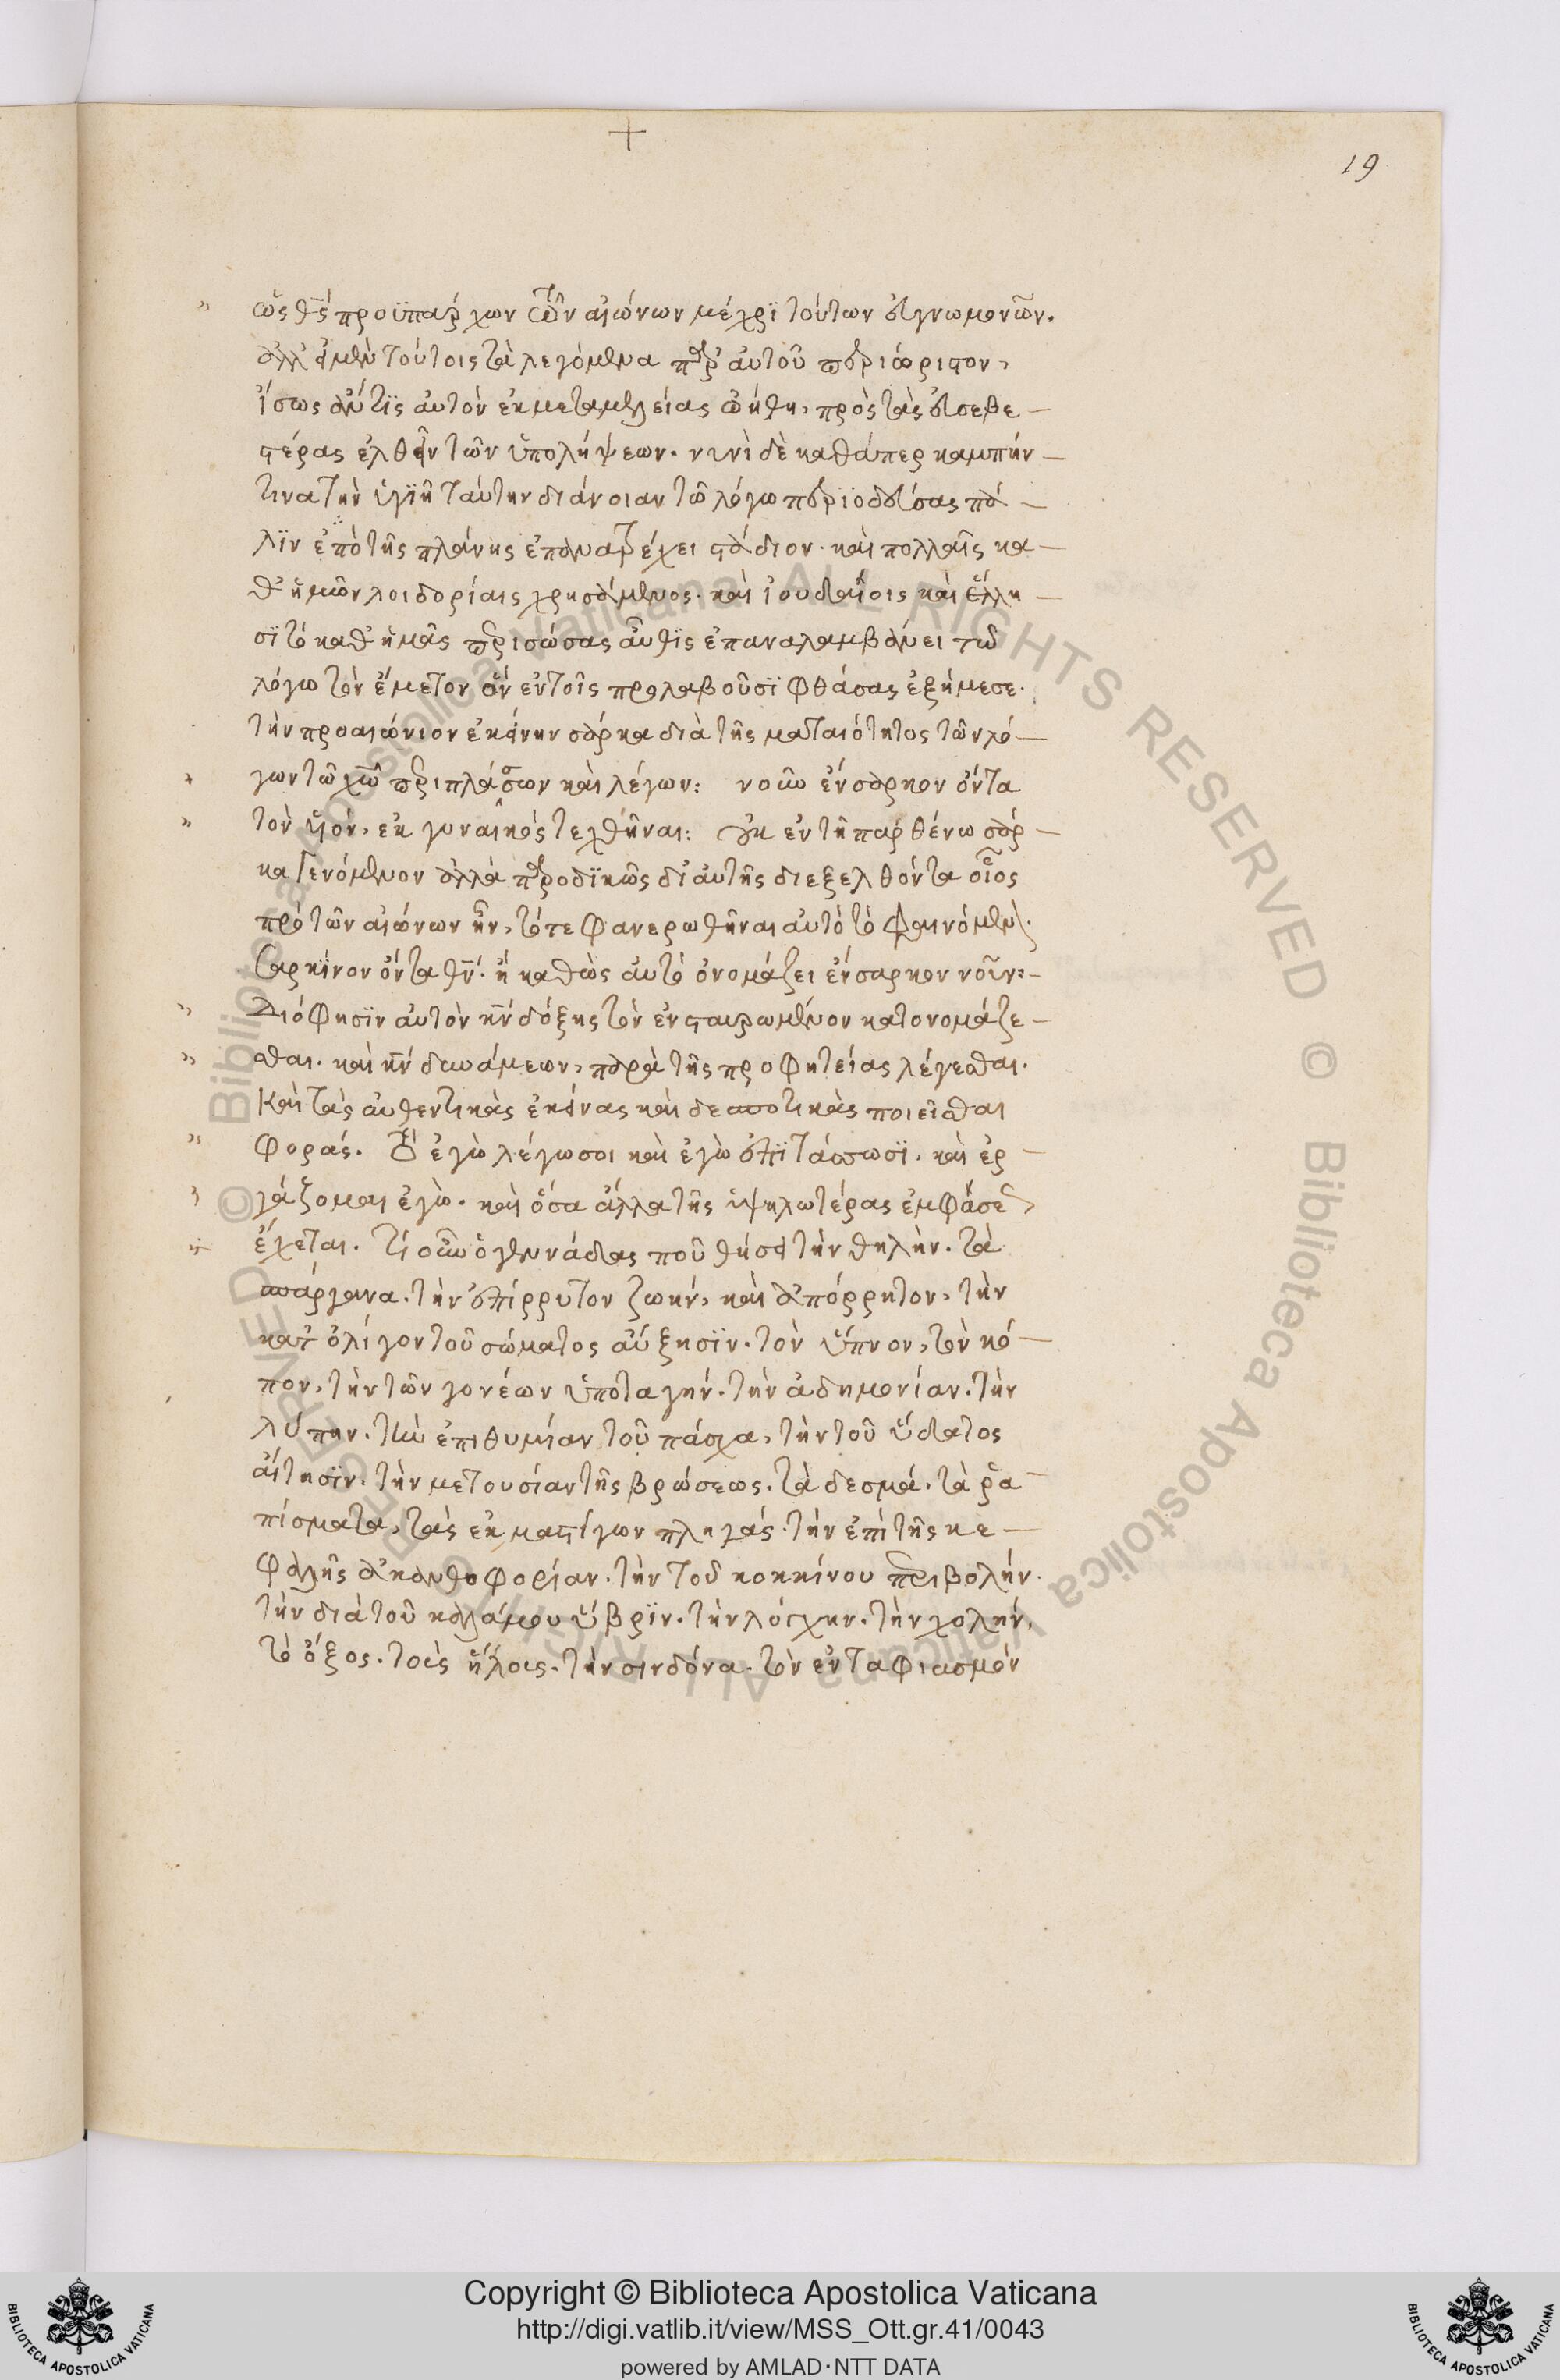 19
ὡς θς προϋπάρχων τῶν αἰώνων μέχρι τούτων εὐγνωμονῶν.
ἀλλ' εἰ μὲν τούτοις τὰ λεγόμενα παρ' αὐτοῦ περιώριστον,
ἴσως ἄν τις αὐτὸν ἐκ μεταμελείας ὠήθη, πρὸς τὰς εὐσεβε-
στέρας ἐλθεῖν τῶν ὑπολήψεων. νυνὶ δὲ καθάπερ καμπήν
τινα τὴν ὑγιῆ ταύτην διάνοιαν τῶ λόγω περιοδεύσας πά-
λιν ἐπὸ τῆς πλάνης ἐπανατρέχει στάδιον. καὶ πολλαῖς κα-
θ' ἡμῶν λοιδορίαις χρησάμενος. καὶ ἰουδαίοις καὶ ἕλλη-
σι τὸ καθ' ἡμᾶς περισώσας αὖθις ἐπαναλαμβάνει τῶ
λόγω τὸν ἔμετον ὃν ἐν τοῖς προλαβοῦσι φθάσας ἐξήμεσε.
τὴν προαιώνιον ἐκείνην σάρκα διὰ τῆς ματαιότητος τῶν λό-
γων τῶ χω περιπλάσσων καὶ λέγων: νοῦν ἔνσαρκον ὄντα
τὸν υἱόν, ἐκ γυναικὸς τεχθῆναι: οὐκ ἐν τῆ παρθένω σάρ-
κα γενόμενον ἀλλὰ παροδικῶς δι' αὐτῆς διεξελθόντα οἷος
πρὸ τῶν αἰώνων ἦν, τότε φανερωθῆναι αὐτὸ τὸ φαινόμενον.
σαρκίνον ὄντα θν. ἢ καθὼς αὐτὸ ὀνομάζει ἔνσαρκον νοῦν:-
Διό φησιν αὐτὸν κν δόξης τὸν ἐνσταυρωμένον κατονομάζε-
σθαι. καὶ κν δυνάμεων, παρὰ τῆς προφητείας λέγεσθαι.
Καὶ τὰς αὐθεντικὰς ἐκείνας καὶ δεσποτικὰς ποιεῖσθαι
φοράς. ἐγὼ λέγω σοι καὶ ἐγὼ ἐπιτάσσω σι. καὶ ἐρ-
γάζομαι ἐγὼ. καὶ ὅσα ἄλλα τῆς ὑψηλωτέρας ἐμφάσεως
ἔχεται. τί οὖν ὁ γεννάδας ποῦ θήσει τὴν θηλὴν. τὰ
σπάργανα. τὴν ἐπίρρυτον ζωήν, καὶ ἀπόρρητον, τὴν
κατ' ὀλίγον τοῦ σώματος αὔξησιν. τὸν ὕπνον, τὸν κό-
πον, τὴν τῶν γονέων ὑποταγήν. τὴν ἀδημονίαν. τὴν
λύπην. τὴν ἐπιθυμίαν τοῦ πάσχα, τὴν τοῦ ὕδατος
αἴτησιν. τὴν μετουσίαν τῆς βρώσεως. τὰ δεσμά. τὰ ῥα-
πίσματα, τὰς ἐκ μαστίγων πληγάς. τὴν ἐπὶ τῆς κε-
φαλῆς ἀκανθοφορίαν. τὴν τοῦ κοκκίνου περιβολήν.
τὴν διὰ τοῦ καλάμου ὕβριν. τὴν λόγχην. τὴν χολήν,
τὸ ὄξος. τοὺς ἥλους. τὴν σινδόνα. τὸν ἐνταφιασμόν
Copyright © Biblioteca Apostolica Vaticana
http://digi.vatlib.it/view/MSS_Ott.gr.41/0043
powered by AMLAD·NTT DATA
BIBLIOTECA APOSTOLICA VATICANA
BIBLIOTECA APOSTOLICA VATICANA
© Biblioteca Apostolica Vaticana ALL RIGHTS RESERVED © Biblioteca Apostolica Vaticana ALL RIGHTS RESERVED